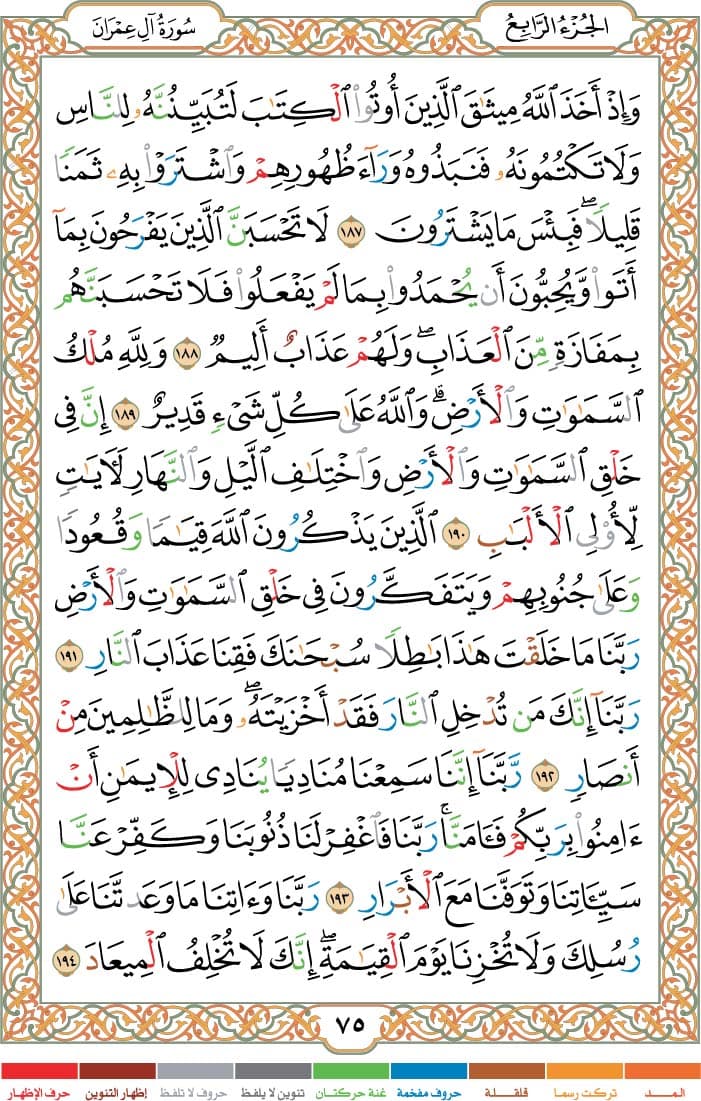 الجُزْءُ الرَّابِعُ
سُورَةُ آلِ عِمْرَانَ
وَإِذْ أَخَذَ ٱللَّهُ مِيثَٰقَ ٱلَّذِينَ أُوتُوا۟ ٱلْكِتَٰبَ لَتُبَيِّنُنَّهُۥ لِلنَّاسِ
وَلَا تَكْتُمُونَهُۥ فَنَبَذُوهُ وَرَآءَ ظُهُورِهِمْ وَٱشْتَرَوْا۟ بِهِۦ ثَمَنًا
قَلِيلًا ۖ فَبِئْسَ مَا يَشْتَرُونَ ١٨٧ لَا تَحْسَبَنَّ ٱلَّذِينَ يَفْرَحُونَ بِمَآ
أَتَوا۟ وَّيُحِبُّونَ أَن يُحْمَدُوا۟ بِمَا لَمْ يَفْعَلُوا۟ فَلَا تَحْسَبَنَّهُم
بِمَفَازَةٍ مِّنَ ٱلْعَذَابِ ۖ وَلَهُمْ عَذَابٌ أَلِيمٌ ١٨٨ وَلِلَّهِ مُلْكُ
ٱلسَّمَٰوَٰتِ وَٱلْأَرْضِ ۗ وَٱللَّهُ عَلَىٰ كُلِّ شَىْءٍ قَدِيرٌ ١٨٩ إِنَّ فِى
خَلْقِ ٱلسَّمَٰوَٰتِ وَٱلْأَرْضِ وَٱخْتِلَٰفِ ٱلَّيْلِ وَٱلنَّهَارِ لَءَايَٰتٍ
لِّأُو۟لِى ٱلْأَلْبَٰبِ ١٩٠ ٱلَّذِينَ يَذْكُرُونَ ٱللَّهَ قِيَٰمًا وَقُعُودًا
وَعَلَىٰ جُنُوبِهِمْ وَيَتَفَكَّرُونَ فِى خَلْقِ ٱلسَّمَٰوَٰتِ وَٱلْأَرْضِ
رَبَّنَا مَا خَلَقْتَ هَٰذَا بَٰطِلًا سُبْحَٰنَكَ فَقِنَا عَذَابَ ٱلنَّارِ ١٩١
رَبَّنَآ إِنَّكَ مَن تُدْخِلِ ٱلنَّارَ فَقَدْ أَخْزَيْتَهُۥ ۖ وَمَا لِلظَّٰلِمِينَ مِنْ
أَنصَارٍ ١٩٢ رَّبَّنَآ إِنَّنَا سَمِعْنَا مُنَادِيًا يُنَادِى لِلْإِيمَٰنِ أَنْ
ءَامِنُوا۟ بِرَبِّكُمْ فَـَٔامَنَّا ۚ رَبَّنَا فَٱغْفِرْ لَنَا ذُنُوبَنَا وَكَفِّرْ عَنَّا
سَيِّـَٔاتِنَا وَتَوَفَّنَا مَعَ ٱلْأَبْرَارِ ١٩٣ رَبَّنَا وَءَاتِنَا مَا وَعَدتَّنَا عَلَىٰ
رُسُلِكَ وَلَا تُخْزِنَا يَوْمَ ٱلْقِيَٰمَةِ ۗ إِنَّكَ لَا تُخْلِفُ ٱلْمِيعَادَ ١٩٤
٧٥
المـــد تركت رسما قلقـــلة حروف مفخمة غنة حركتان تنوين لا يلفظ حروف لا تلفظ إظهار التنوين حرف الإظهار